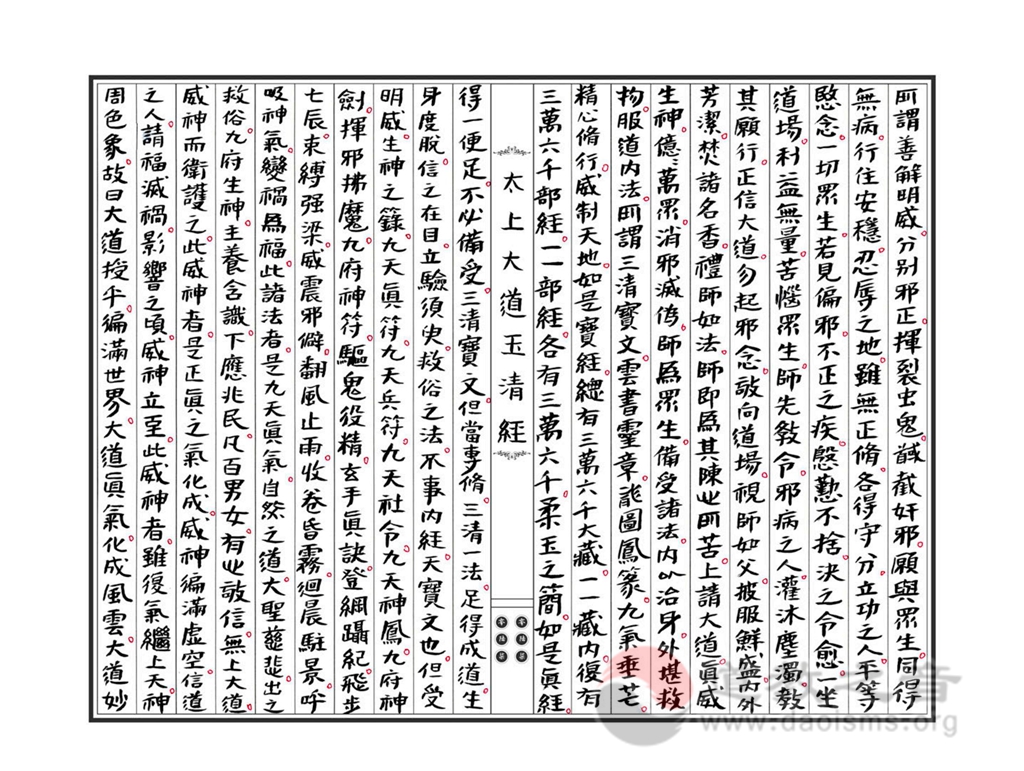 所謂善解明威分别邪正揮裂虫鬼馘截奸邪願與眾生同得
無病行住安穩忍辱之地雖無正脩各得守分立功之人平等
愍念一切眾生若見偏邪不正之疾慇懃不捨決之令愈一坐
道場利益無量苦惱眾生師先教令邪病之人灌沐塵濁教
其願行正信大道勿起邪念敬向道場視師如父披服鮮盛内外
芳潔焚諸名香禮師如法師即為其陳此所苦上請大道真威
生神億〻萬眾消邪滅偽師為眾生備受諸法内以治身外堪救
物服道内法所謂三清寶文雲書靈章龍圖鳳篆九氣垂芒
精心脩行威制天地如是寶經總有三萬六千大藏一一藏内復有
三萬六千部經一一部經各有三萬六千柔玉之簡如是真經
太上大道玉清經
得一便足不必備受三清寶文但當專脩三清一法足得成道生
身度脫信之在目立驗須臾救俗之法不事内經天寶文也但受
明威生神之籙九天真符九天兵符九天社令九天神鳳九府神
劍揮邪拂魔九府神符驅鬼役精玄手真訣登綱躡紀飛步
七辰束縛强梁威震邪僻翻風止雨收卷昏霧迴晨駐景呼
吸神氣變禍為福此諸法者是九天真氣自然之道大聖慈悲出之
救俗九府生神主養含識下應兆民凡百男女有此敬信無上大道
威神而衛護之此威神者是正真之氣化成威神徧滿虛空信道
之人請福滅禍影響之頃威神立至此威神者雖復氣繼上天神
周色象故曰大道授乎徧滿世界大道真氣化成風雲大道妙
道教之音
www.daoisms.org